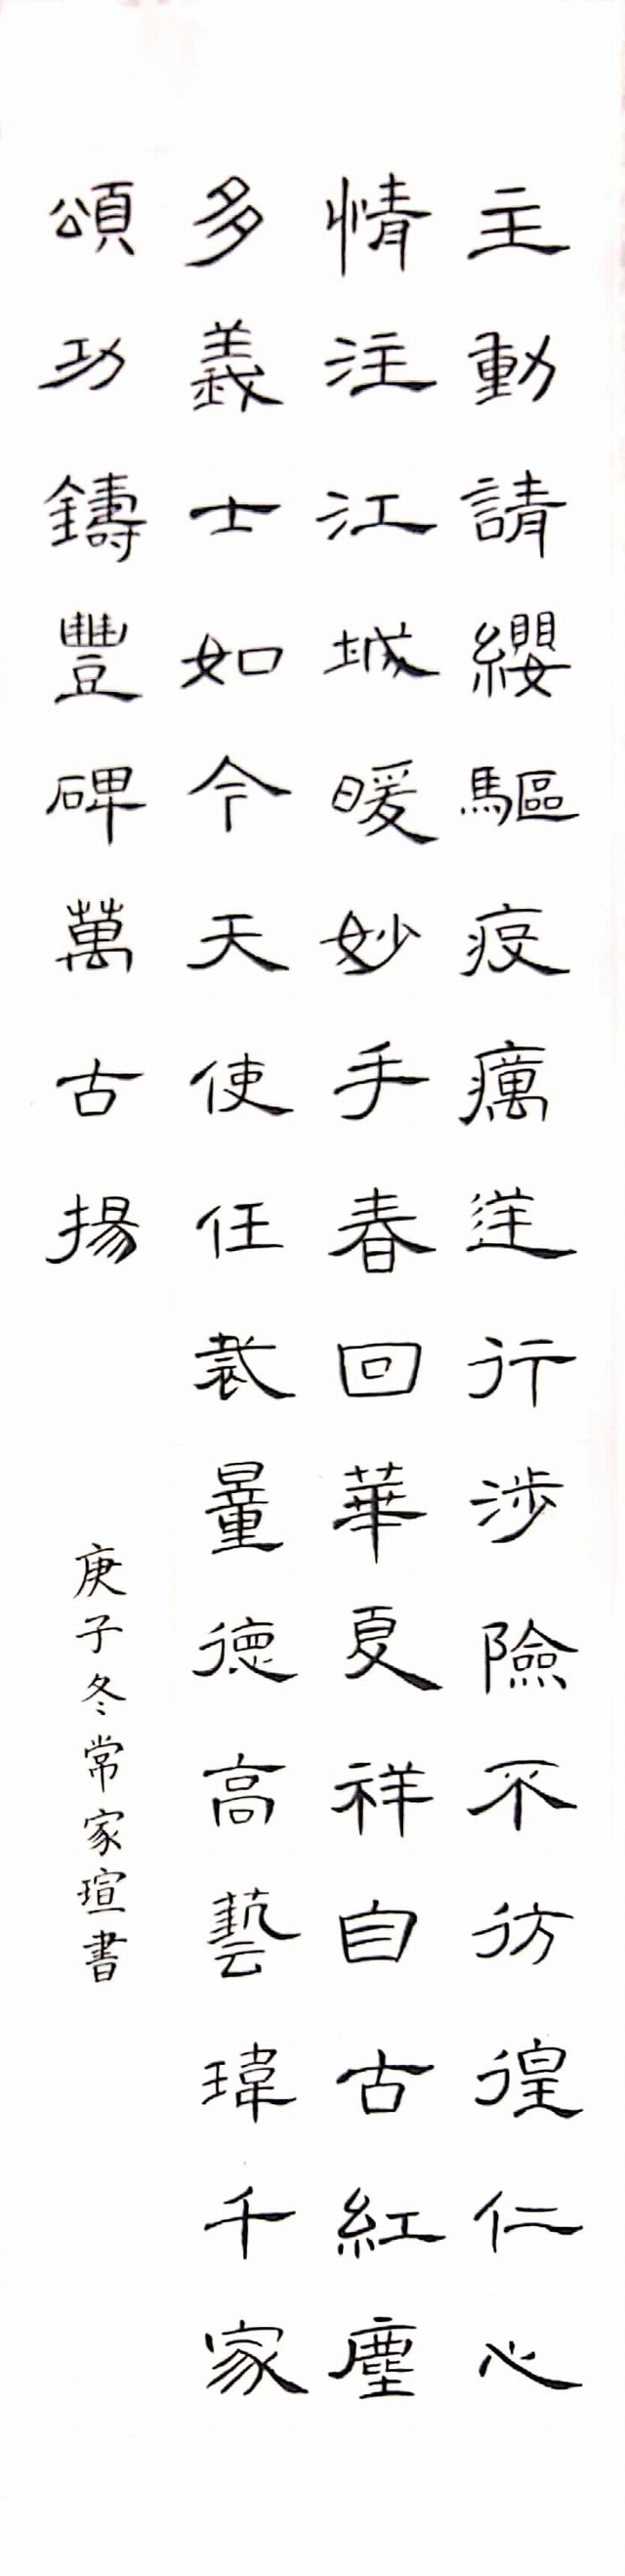 主動請纓驅疫癘逆行涉險不彷徨仁心
情注江城暖妙手春回華夏祥自古紅塵
多義士如今天使任裁量德高藝瑋千家
頌功鑄豐碑萬古揚
庚子冬常家瑄書